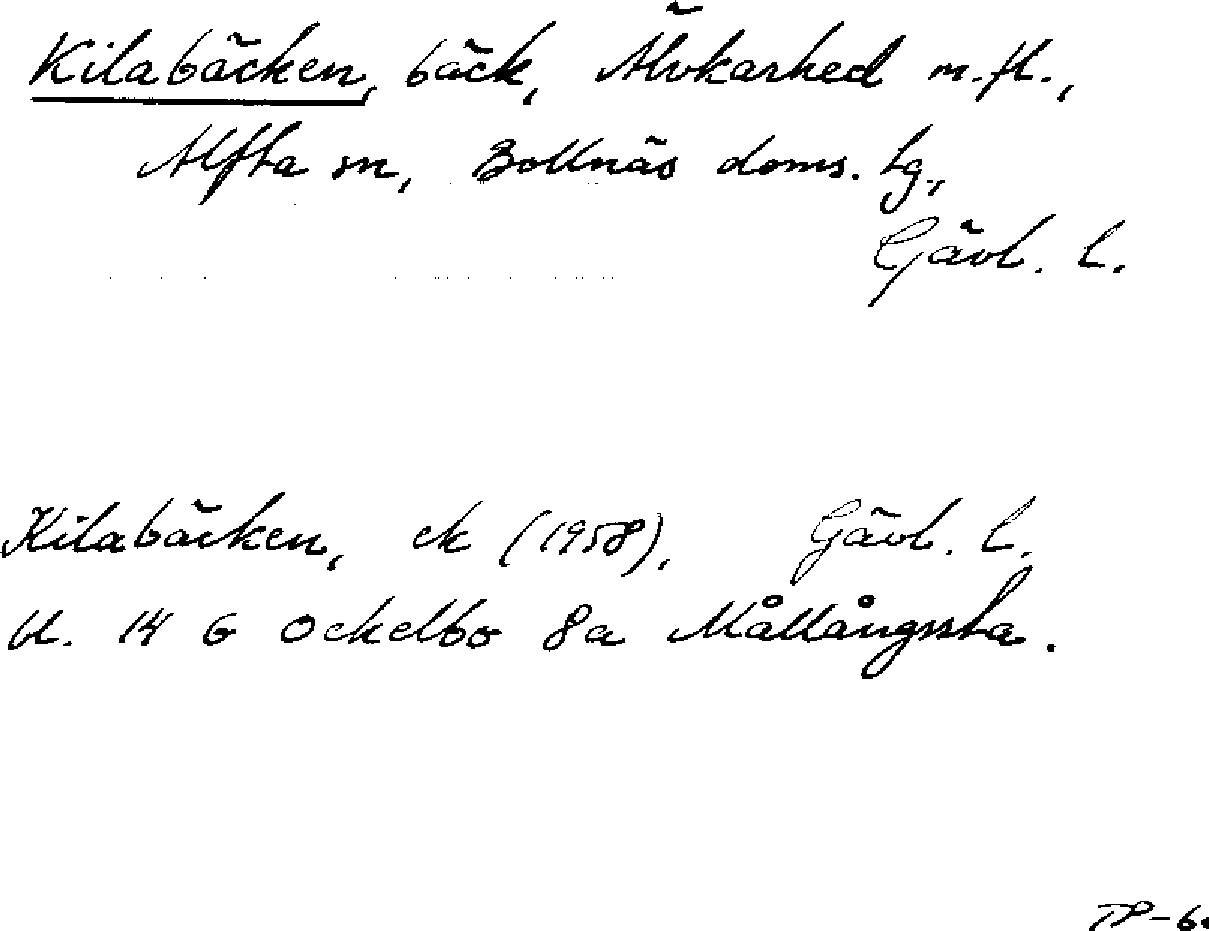 Kilabäcken, bäck, Älvkarhed m.fl.,
Alfta sn, Bollnäs doms. tg.,
Gävl. l.
Kilabäcken, ek (1958), Gävl. l.
bl. 14 G Ockelbo 8a Mållångssta.